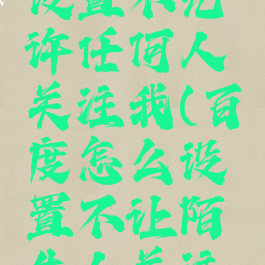 设置不允
许任何人
关注我(百
度怎么设
置不让陌
生人关注